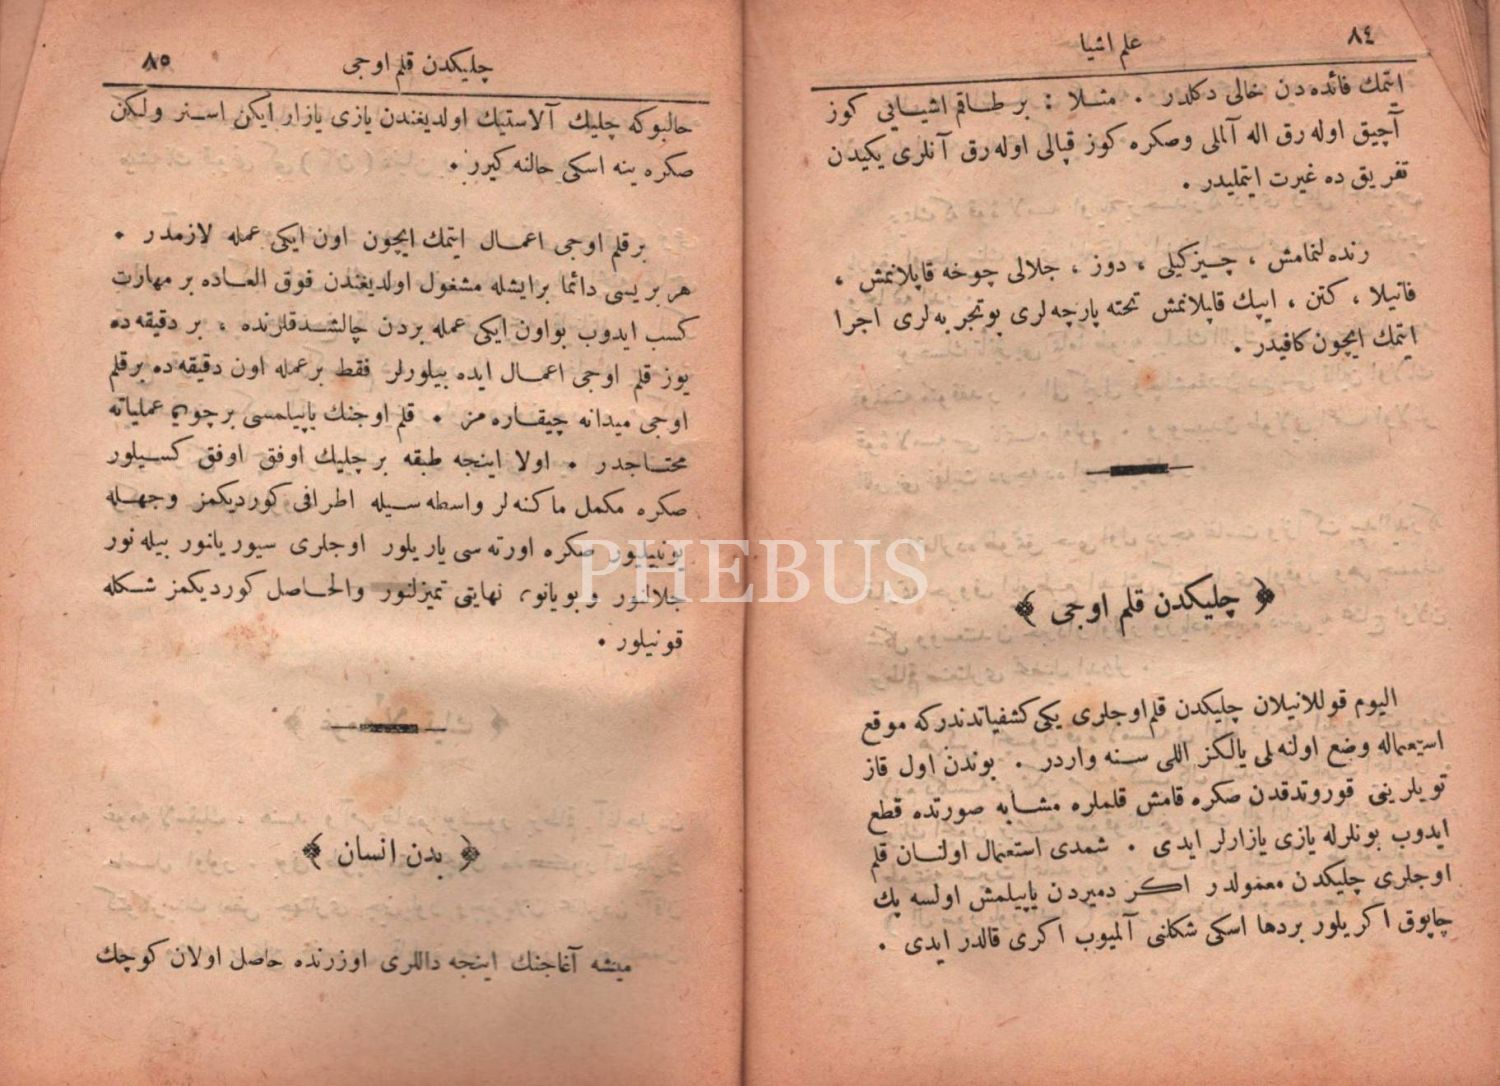 ٨٤
علم اشيا
ايتمك فائده دن خالى دكلدر . مثلا : بر طاقم اشيايى كوز
آچيق اوله رق اله آلملى وصكره كوز قپالى اوله رق آنلرى يكيدن
تفريق ده غيرت ايتمليدر .
رنده لنمامش ، چيزكيلى ، دوز ، جلالى چوخه قاپلانمش ،
فانيلا ، كتن ، ايپك قاپلانمش تخته پارچه لرى بو تجربه لرى اجرا
ايتمك ايچون كافيدر .
﴿ چليكدن قلم اوجى ﴾
اليوم قوللانيلان چليكدن قلم اوجلرى يكى كشفياتدندركه موقع
استعماله وضع اولنه لى يالكز اللى سنه واردر . بوندن اول قاز
تويلرينى قوروتدقدن صكره قامش قلملره مشابه صورتده قطع
ايدوب بونلرله يازى يازارلر ايدى . شمدى استعمال اولنان قلم
اوجلرى چليكدن معمولدر اكر دميردن ياپيلمش اولسه پك
چاپوق اكريلور بردها اسكى شكلنى آلميوب اكرى قالدر ايدى .
چليكدن قلم اوجى
٨٥
حالبوكه چليك آلاستيك اولديغندن يازى يازار ايكن اسنر ولكن
صكره ينه اسكى حالنه كيرر .
بر قلم اوجى اعمال ايتمك ايچون اون ايكى عمله لازمدر .
هر بريسى دائما بر ايشله مشغول اولديغندن فوق العاده بر مهارت
كسب ايدوب بو اون ايكى عمله بردن چالشدقلرنده ، بر دقيقه ده
يوز قلم اوجى اعمال ايده بيلورلر فقط بر عمله اون دقيقه ده بر قلم
اوجى ميدانه چيقاره مز . قلم اوجنك ياپيلمسى بر چوق عملياته
محتاجدر . اولا اينجه طبقه بر چليك اوفق اوفق كسيلور
صكره مكمل ماكنه لر واسطه سيله اطرافى كورديكمز وجهله
يونتيلور صكره اورته سى ياريلور اوجلرى سيوريانور بيله نور
جلالنور و بويانور نهايتى تميزلنور والحاصل كورديكمز شكله
قونيلور .
﴿ بدن انسان ﴾
ميشه آغاجنك اينجه داللرى اوزرنده حاصل اولان كوچك
PHEBUS